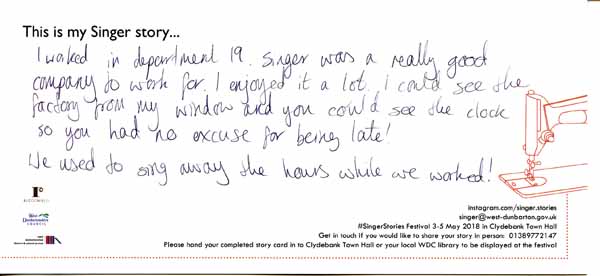 This is my Singer story...
I worked in department 19. Singer was a really good
company to work for. I enjoyed it a lot. I could see the
factory from my window and you could see the clock
so you had no excuse for being late!
We used to sing away the hours while we worked!
instagram.com/singer.stories
singer@west-dunbarton.gov.uk
#SingerStories Festival 3-5 May 2018 in Clydebank Town Hall
Get in touch if you would like to share your story in person: 01389772147
Please hand your completed story card in to Clydebank Town Hall or your local WDC library to be displayed at the festival